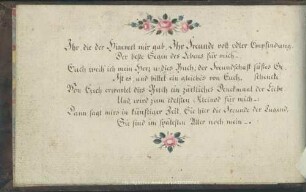 Ihr die der Himmel mir gab, Ihr Freunde voll edler Empfindung,
Der beste Segen des Lebens für mich.
Euch weih ich mein Herz u. dies Buch, der Freundschaft süßes
Ist es, und bittet ein gleiches von Euch.
Von Euch erwartet dies Buch ein zärtliches Denkmaal der Liebe
Und wird zum edelsten Kleinod für mich.
Dann sagt mirs in künftiger Zeit, Sie hier die Freunde der Jugend,
Sie sind im spätesten Alter noch mein.